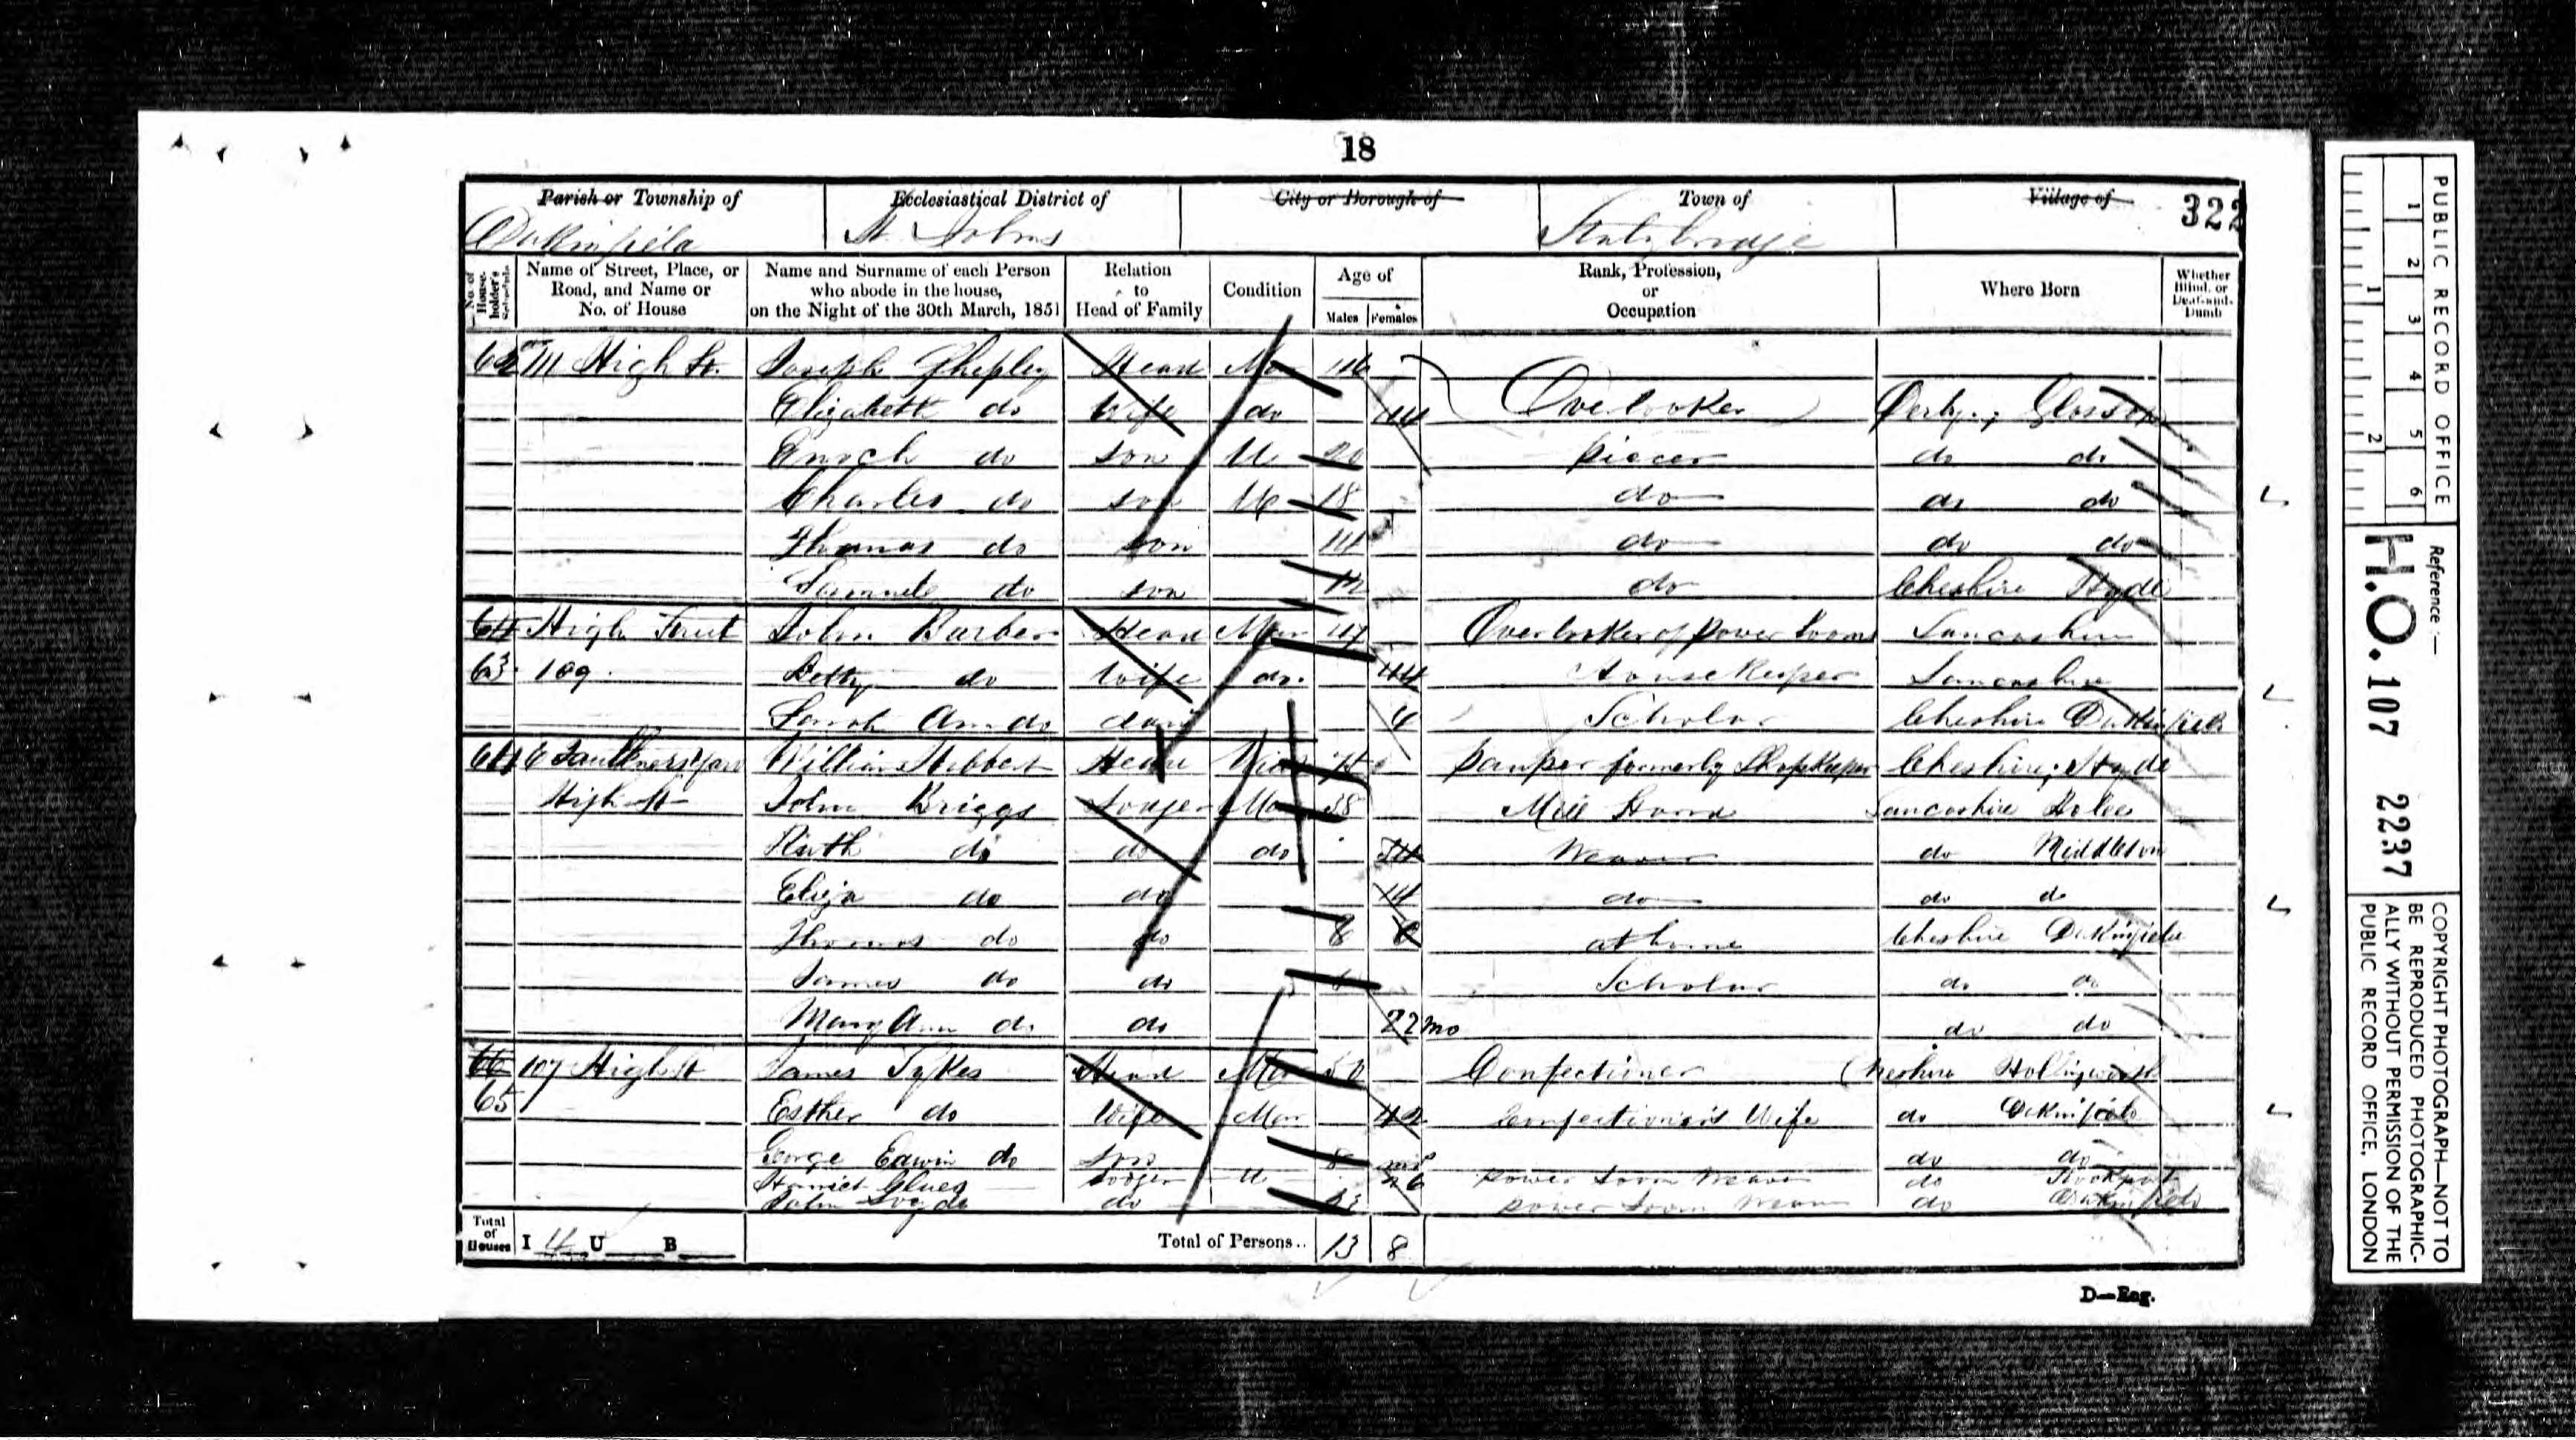 18
Parish or Township of Ecclesiastical District of City or Borough of Town of Village of 322
Dukinfield St. Johns Stalybridge
No. of House-holder's Schedule Name of Street, Place, or Road, and Name or No. of House Name and Surname of each Person who abode in the house, on the Night of the 30th March, 1851 Relation to Head of Family Condition Age of Males Females Rank, Profession, or Occupation Where Born Whether Blind, or Deaf-and-Dumb
62 111 High St. Joseph Shepley Head Mar 46
Elizabeth do Wife do 44 Overlooker Derby; Glossop
Enoch do son U 20 piecer do do
Charles do son U 18 do do do
Thomas do son 14 do do do
Samuel do son 12 do Cheshire Hyde
64 High Street John Barber Head Mar 47 Overlooker of Power Looms Lancashire
63 109. Betty do Wife do. 44 House Keeper Lancashire
Sarah Ann do daur 6 Scholar Cheshire Dukinfield
64 6 Faulkners Yard William Hibbert Head 74 pauper formerly Shopkeeper Cheshire; Hyde
High St John Briggs Lodger Mar 38 Mill Hand Lancashire
Ruth do do do 34 Weaver do Middleton
Eliza do do 14 do do do
Thomas do do 8 at home Cheshire Dukinfield
James do do Scholar do do
Mary Ann do do 22 mo do do
66 107 High St James Sykes Head Mar 50 Confectioner Cheshire Hollingworth
65 Esther do Wife Mar 42 Confectioner's Wife do Dukinfield
George Edwin do Son 8 do do
Harriet Lodger U 26 power Loom Weaver do Stockport
John do 23 power Loom Weaver do Dukinfield
Total of Houses I 4 U B Total of Persons.. 13 8
D—Eng.
PUBLIC RECORD OFFICE
1 2 3 4 5 6
1 2
Reference:—
H.O. 107 2237
COPYRIGHT PHOTOGRAPH—NOT TO
BE REPRODUCED PHOTOGRAPHIC-
ALLY WITHOUT PERMISSION OF THE
PUBLIC RECORD OFFICE, LONDON